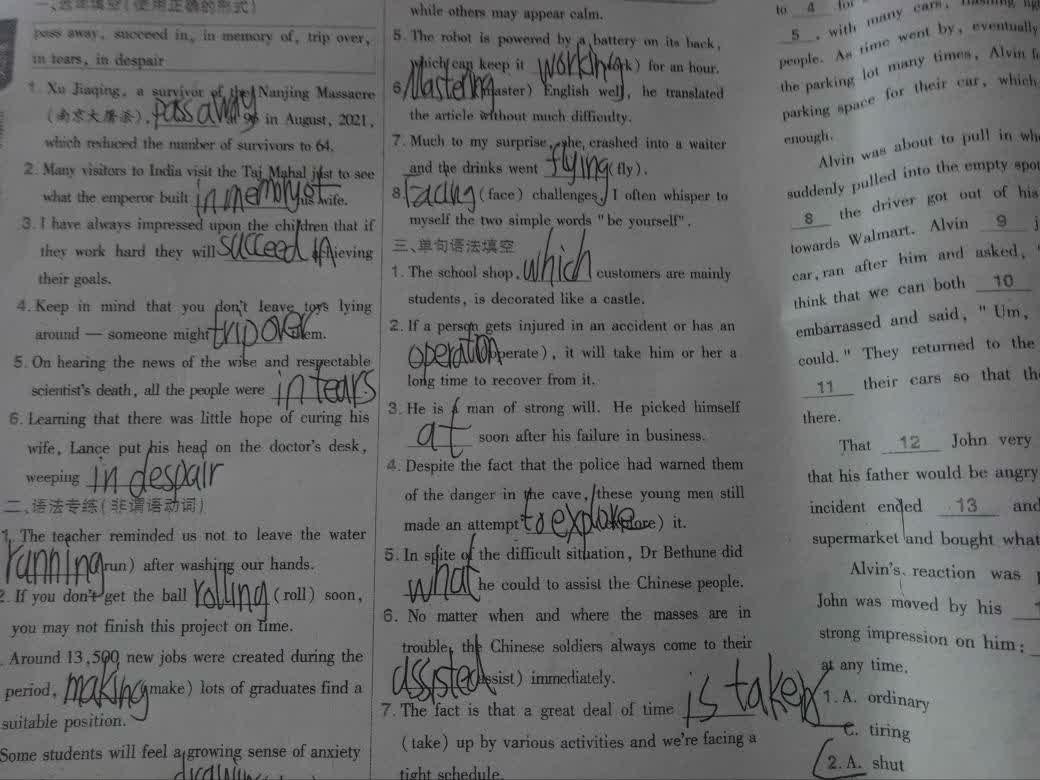 一、选词填空(使用正确的形式)
pass away, succeed in, in memory of, trip over,
in tears, in despair
1. Xu Jiaqing, a survivor of the Nanjing Massacre
(南京大屠杀), pass away at 96 in August, 2021,
which reduced the number of survivors to 64.
2. Many visitors to India visit the Taj Mahal just to see
what the emperor built in memory of his wife.
3. I have always impressed upon the children that if
they work hard they will succeed in achieving
their goals.
4. Keep in mind that you don't leave toys lying
around — someone might trip over them.
5. On hearing the news of the wise and respectable
scientist's death, all the people were in tears
6. Learning that there was little hope of curing his
wife, Lance put his head on the doctor's desk,
weeping in despair
二、语法专练(非谓语动词)
1. The teacher reminded us not to leave the water
running (run) after washing our hands.
2. If you don't get the ball rolling (roll) soon,
you may not finish this project on time.
. Around 13,500 new jobs were created during the
period, making (make) lots of graduates find a
suitable position.
Some students will feel a growing sense of anxiety
while others may appear calm.
5. The robot is powered by a battery on its back,
which can keep it working (work) for an hour.
6. Mastering (master) English well, he translated
the article without much difficulty.
7. Much to my surprise, she crashed into a waiter
and the drinks went flying (fly).
8. Facing (face) challenges, I often whisper to
myself the two simple words "be yourself".
三、单句语法填空
1. The school shop, which customers are mainly
students, is decorated like a castle.
2. If a person gets injured in an accident or has an
operation (operate), it will take him or her a
long time to recover from it.
3. He is a man of strong will. He picked himself
at soon after his failure in business.
4. Despite the fact that the police had warned them
of the danger in the cave, these young men still
made an attempt to explore (explore) it.
5. In spite of the difficult situation, Dr Bethune did
what he could to assist the Chinese people.
6. No matter when and where the masses are in
trouble, the Chinese soldiers always come to their
assisted (assist) immediately.
7. The fact is that a great deal of time is taken
(take) up by various activities and we're facing a
tight schedule.
to 4 for
5, with many cars, flashing
people. As time went by, eventually
the parking lot many times, Alvin
parking space for their car, which
enough.
Alvin was about to pull in
suddenly pulled into the empty spot
8 the driver got out of his
towards Walmart. Alvin 9
car, ran after him and asked,
think that we can both 10
embarrassed and said, "Um,
could." They returned to the
11 their cars so that
there.
That 12 John very
that his father would be angry
incident ended 13 and
supermarket and bought what
Alvin's reaction was
John was moved by his
strong impression on him:
at any time.
1. A. ordinary
C. tiring
2. A. shut